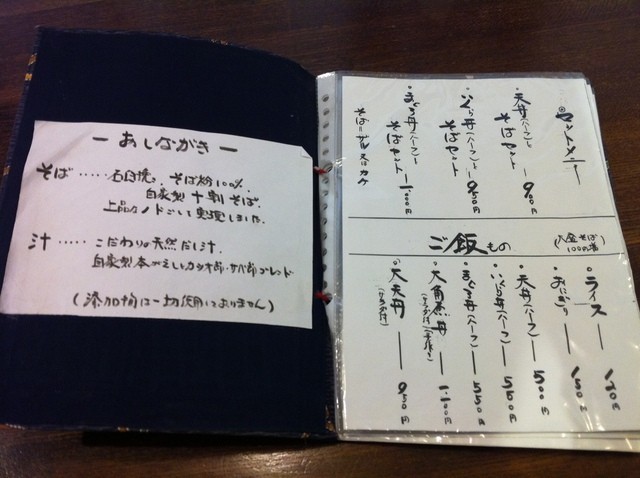 ー おしながき ー
そば ‥‥‥ 石臼挽き。そば粉100%
自家製 十割そば。
上品なノドごしを実現しました。
汁 ‥‥‥ こだわりの天然だし汁。
自家製本がえしとカツオ節・サバ節ブレンド
(添加物は一切使用しておりません)
◎セットメニュー
・天丼(ハーフ)と
そばセット ― 900円
・いくら丼(ハーフ)と
そばセット ― 950円
・まぐろ丼(ハーフ)と
そばセット ― 1,000円
そばはザル又はカケ
ご飯もの
(大盛そば 100円増)
・ライス ― 120円
・おにぎり ― 150円
・天丼(ハーフ) ― 500円
・いくら丼(ハーフ) ― 500円
・まぐろ丼(ハーフ) ― 550円
・大角煮丼 ― 1,100円
・大天丼 ― 950円